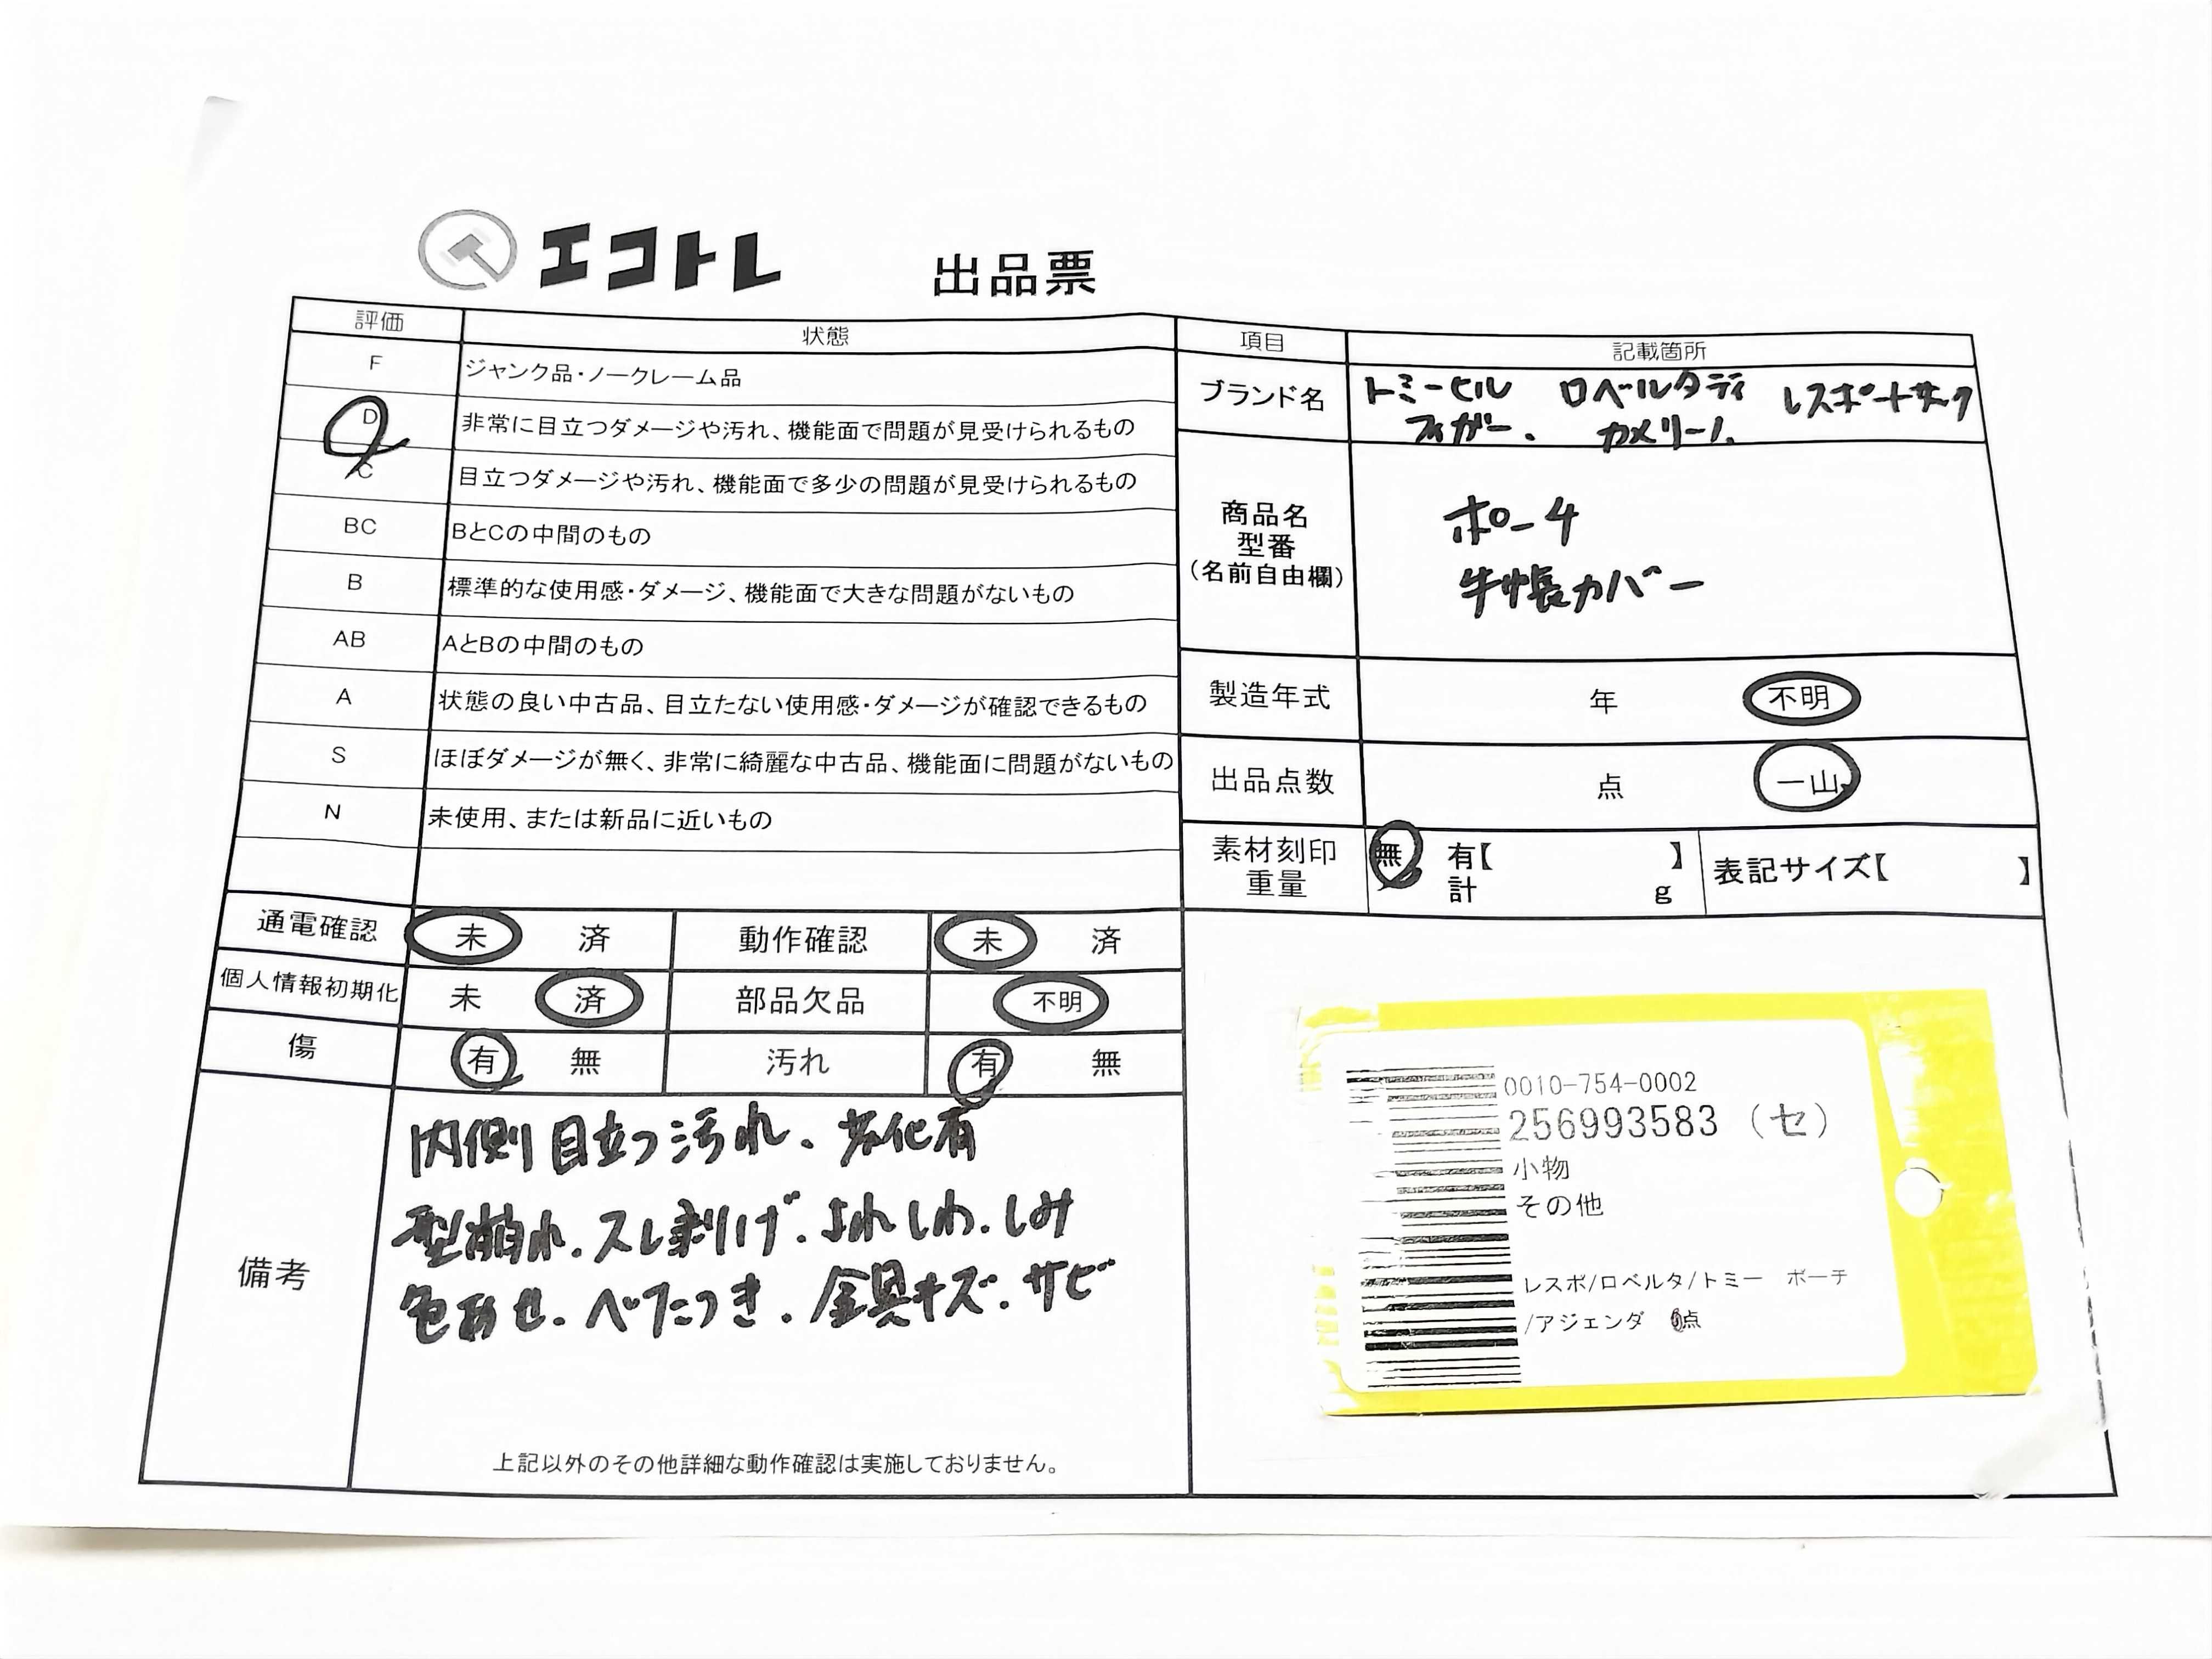 エコトレ 出品票
評価 状態
F ジャンク品・ノークレーム品
D 非常に目立つダメージや汚れ、機能面で問題が見受けられるもの
C 目立つダメージや汚れ、機能面で多少の問題が見受けられるもの
BC BとCの中間のもの
B 標準的な使用感・ダメージ、機能面で大きな問題がないもの
AB AとBの中間のもの
A 状態の良い中古品、目立たない使用感・ダメージが確認できるもの
S ほぼダメージが無く、非常に綺麗な中古品、機能面に問題がないもの
N 未使用、または新品に近いもの
通電確認 未 済 動作確認 未 済
個人情報初期化 未 済 部品欠品 不明
傷 有 無 汚れ 有 無
備考
内側目立つ汚れ、劣化有
型崩れ.スレ剥げ.よれしわ.しみ
色あせ.べたつき.金具キズ.サビ
上記以外のその他詳細な動作確認は実施しておりません。
項目 記載箇所
ブランド名
トミーヒル ロベルタディ レスポートサック
フィガー. カメリーノ.
商品名
型番
(名前自由欄)
ポーチ
手帳カバー
製造年式 年 不明
出品点数 点 一山
素材刻印 無 有【 】 表記サイズ【 】
重量 計 g
0010-754-0002
256993583 (セ)
小物
その他
レスポ/ロベルタ/トミー ポーチ
/アジェンダ 点